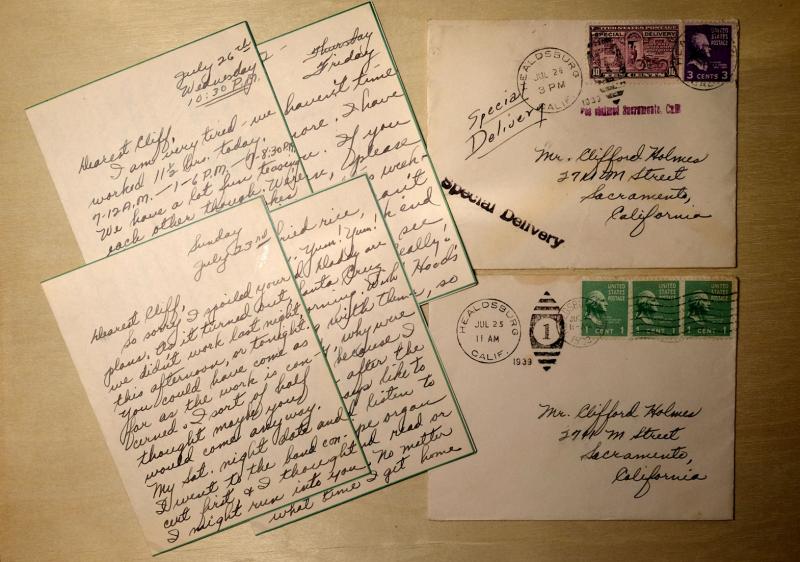 July 26th
Wednesday
10:30 P.M.
Dearest Cliff,
I am very tired - we
worked 11½ hrs. today.
7-12 A.M. - 1-6 P.M. - 7-8:30 P.M.
We have a lot fun teasing
each other though. Warren,
Thursday
Friday
haven't time
more. I have
If you
please
week-
can't
end
see
really!
Sunday
July 23rd
Dearest Cliff,
So sorry I spoiled your
plans. As it turned out,
we didn't work last night,
this afternoon, or tonight.
You could have come as
far as the work is con-
cerned. I sort of half
thought maybe you
would come anyway.
My Sat. night date and I
went to the band con-
cert first & I thought
I might run into you.
fried rice,
Yum! Yum!
Daddy are
Santa Cruz
Hoods'
with them, so
why were
because I
after the
like to
listen to
pipe organ
read or
No matter
what time I get home
UNITED STATES POSTAGE
SPECIAL DELIVERY
10 TEN CENTS 10
UNITED STATES POSTAGE
3 CENTS 3
HEALDSBURG
JUL 28
3 PM
CALIF.
1939
Sacramento, Calif
Special
Delivery
Special Delivery
Mr. Clifford Holmes
M Street
Sacramento,
California
HEALDSBURG
JUL 25
11 AM
CALIF.
1939
1
UNITED STATES POSTAGE
1 CENT 1
UNITED STATES POSTAGE
1 CENT 1
UNITED STATES POSTAGE
1 CENT 1
Mr. Clifford Holmes
M Street
Sacramento,
California